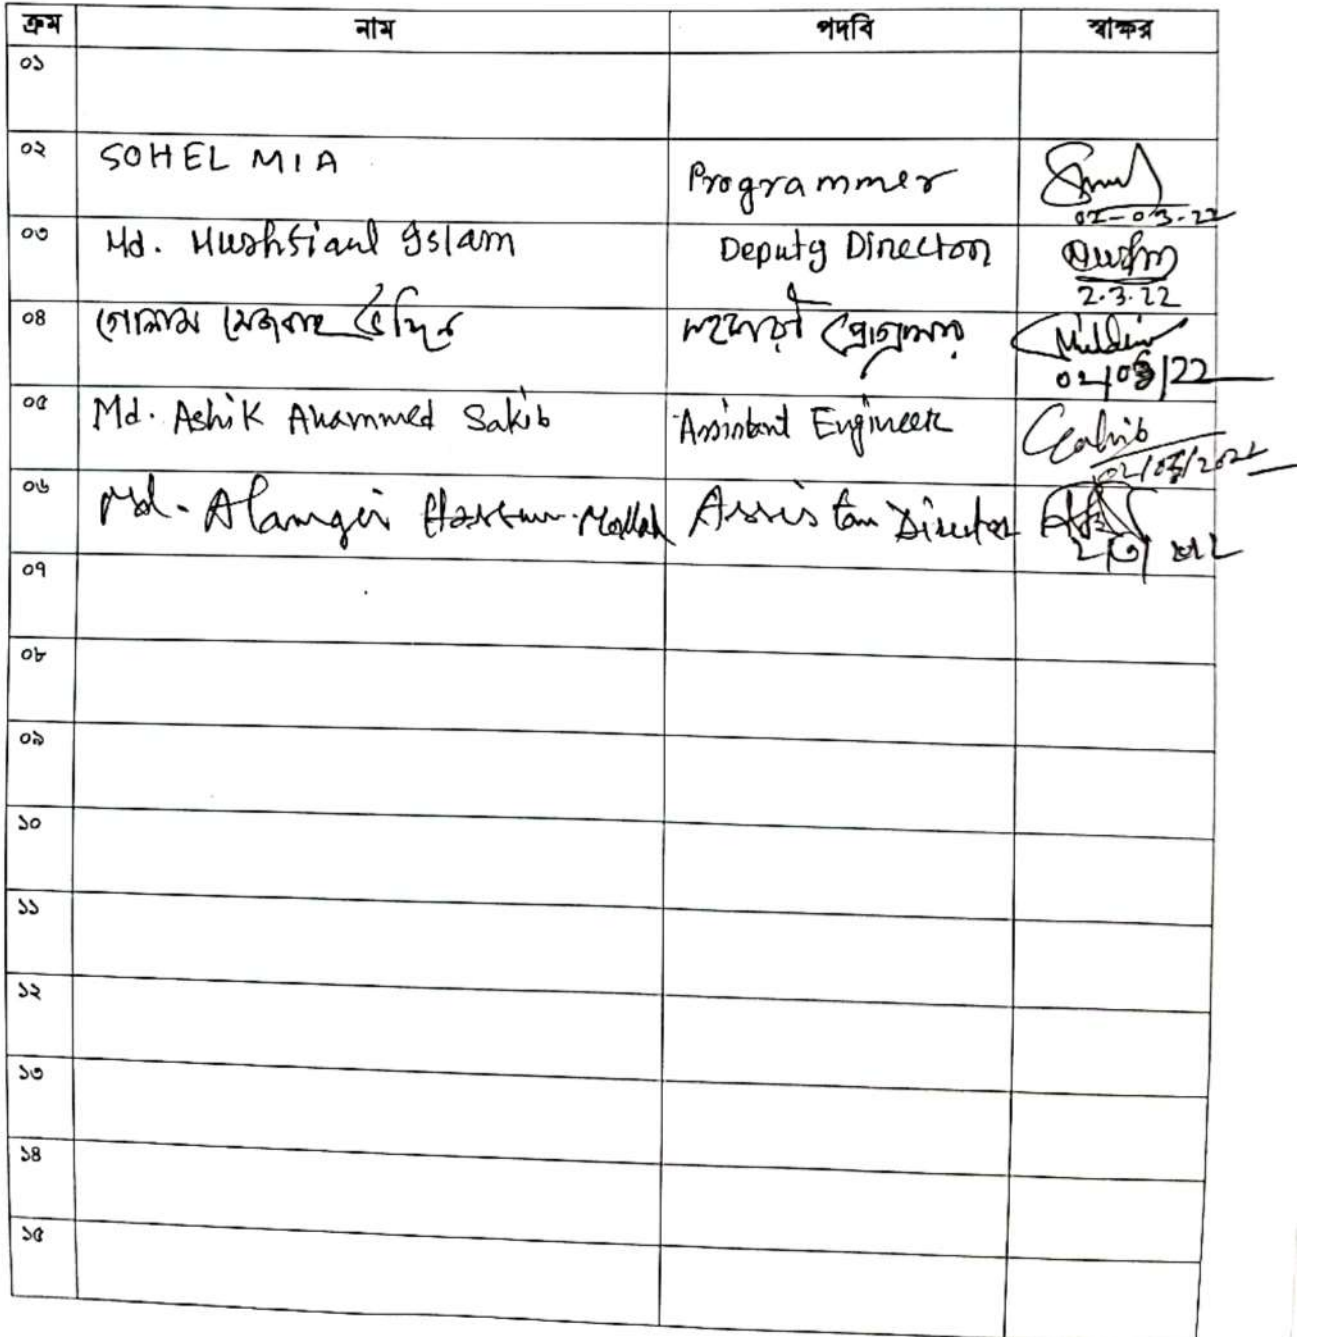 ক্রম নাম পদবি স্বাক্ষর
০১
০২ SOHEL MIA Programmer
02-03-22
০৩ Md. Islam Deputy Director
2.3.22
০৪ গোলাম উদ্দিন সহকারী প্রোগ্রামার
02/03/22
০৫ Md. Ashik Ahammed Sakib Assistant Engineer
02/03/2022
০৬ Md. Alamgir Hassan Mollah Assistan Director
০৭
০৮
০৯
১০
১১
১২
১৩
১৪
১৫